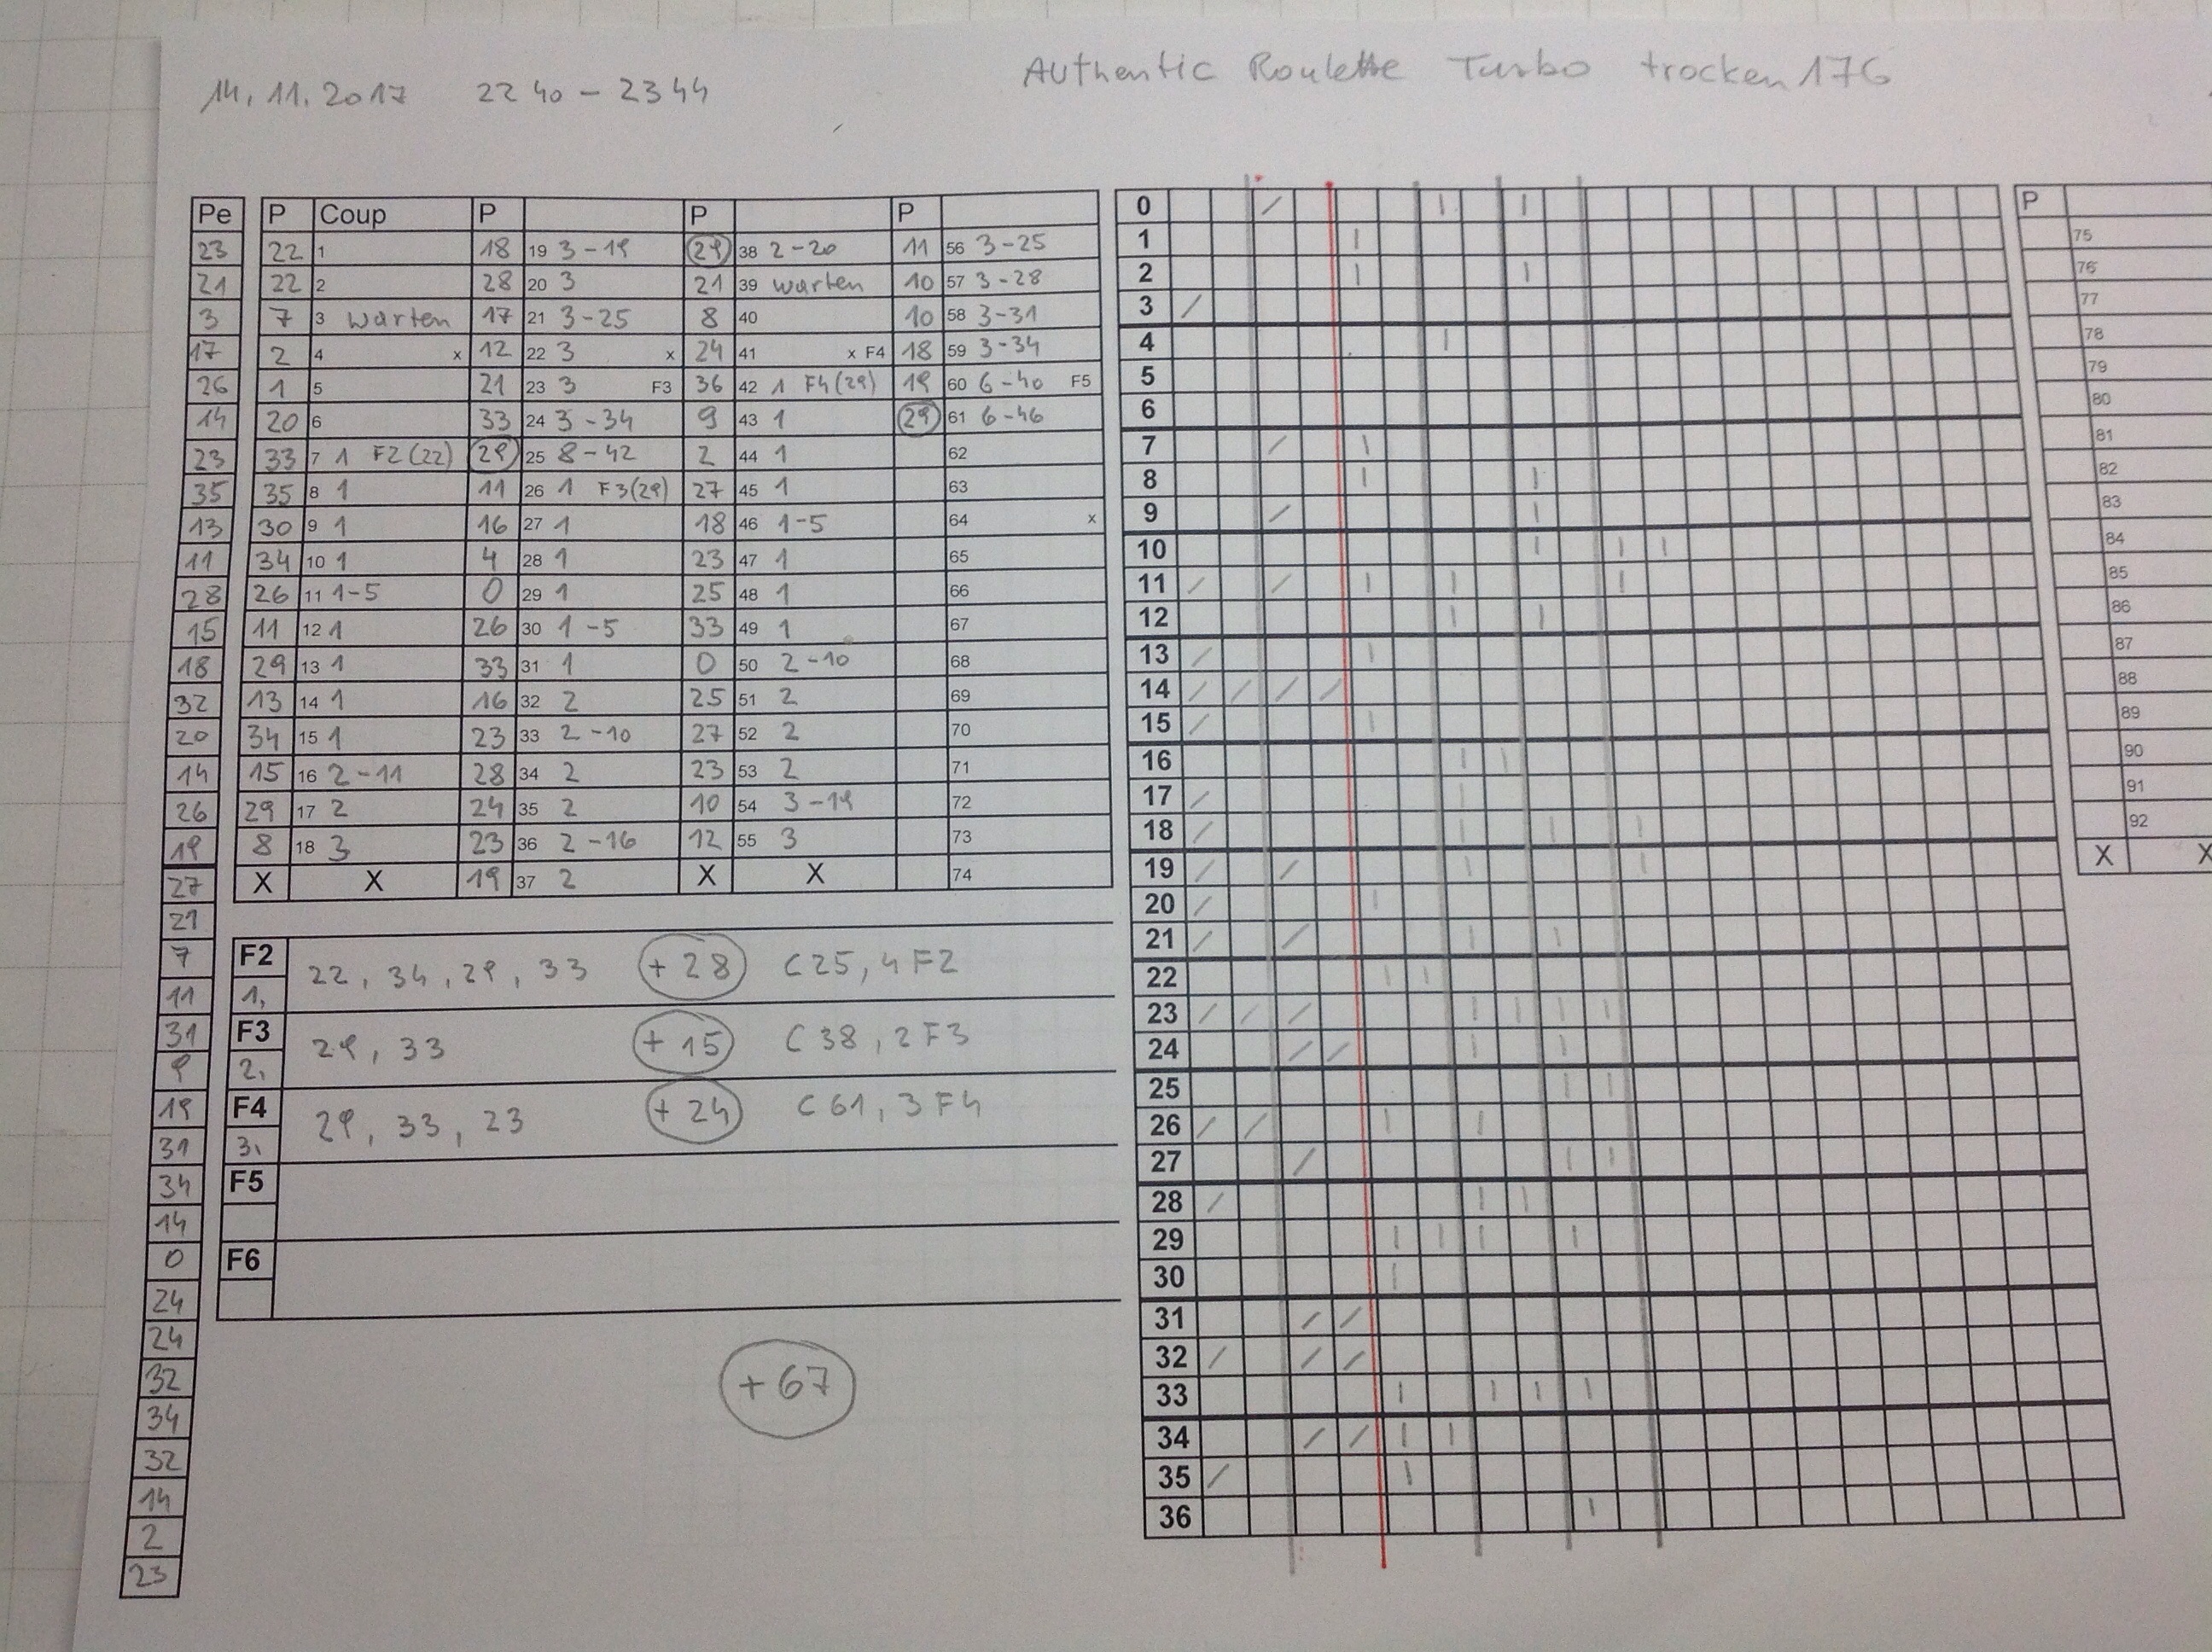 14.11.2017 2240 - 2344 Authentic Roulette Turbo trocken 176
Pe P Coup P P P 0 P
23 22 1 18 19 3-19 29 38 2-20 11 56 3-25 1 75
21 22 2 28 20 3 21 39 warten 10 57 3-28 2 76
3 7 3 warten 17 21 3-25 8 40 10 58 3-31 3 77
17 2 4 x 12 22 3 x 24 41 x F4 18 59 3-34 4 78
26 1 5 21 23 3 F3 36 42 1 F4(29) 19 60 6-40 F5 5 79
14 20 6 33 24 3-34 9 43 1 29 61 6-46 6 80
23 33 7 1 F2(22) 29 25 8-42 2 44 1 62 7 81
35 35 8 1 11 26 1 F3(29) 27 45 1 63 8 82
13 30 9 1 16 27 1 18 46 1-5 64 x 9 83
11 34 10 1 4 28 1 23 47 1 65 10 84
28 26 11 1-5 0 29 1 25 48 1 66 11 85
15 11 12 1 26 30 1-5 33 49 1 67 12 86
18 29 13 1 33 31 1 0 50 2-10 68 13 87
32 13 14 1 16 32 2 25 51 2 69 14 88
20 34 15 1 23 33 2-10 27 52 2 70 15 89
14 15 16 2-11 28 34 2 23 53 2 71 16 90
26 29 17 2 24 35 2 10 54 3-19 72 17 91
19 8 18 3 23 36 2-16 12 55 3 73 18 92
27 X X 19 37 2 X X 74 19 X X
21 20
7 F2 22, 34, 29, 33 +28 C25, 4F2 21
11 1, 22
31 F3 29, 33 +15 C38, 2F3 23
9 2, 24
19 F4 29, 33, 23 +24 C61, 3F4 25
31 3, 26
34 F5 27
14 28
0 F6 29
24 30
24 31
32 +67 32
34 33
32 34
14 35
2 36
23